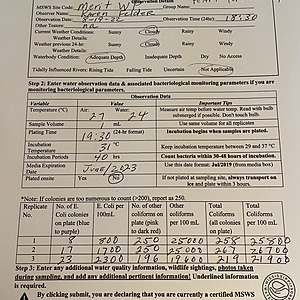 Observation Details
MSWS Site Code: Ment WT Group Name:
Monitor Name: Karen Felder
Observation Date: 8-19-22 Observation Time (24hr) 18:30
Other Testers: na
Current Weather: Sunny Cloudy Rainy Windy
Weather Details:
Weather previous 24-hr Sunny Cloudy Rainy Windy
Weather Details:
Waterbody Condition: Adequate Depth Inadequate Depth Dry No Access
Tidally Influenced Rivers: Rising Tide Falling Tide Uncertain Not Applicable
Step 2: Enter water observation data & associated bacteriological monitoring parameters if you are
monitoring bacteriological parameters.
Observation Data
Variable Value Important Tips
Temperature (°C) Air: 27 Water: 24 Measure air temp before water temp. Read with bulb
submerged if possible. Don't touch bulb.
Sample Volume 1 mL Use same volume for all replicates
Plating Time 19:30 (24-hr format) Incubation begins when samples are plated.
Incubation
Temperature 31 °C Keep incubation temperature between 29 and 37 °C
Incubation Periods 40 hrs Count bacteria within 30-48 hours of incubation.
Media Expiration
Date June/2023 Use this date format: Jul/2019 (from media box)
Plated onsite Yes No If not plated at sampling site, always transport on
ice and plate within 3 hours.
*Note: If colonies are too numerous to count (>200), report as 250.
Replicate
No. No. of E.
Coli colonies
on plate (blue
to purple) E. Coli per
100mL No. of other
coliforms on
plate (pink
to dark red) Other
coliforms
per 100mL Total
coliforms on
plate (all
colonies) Total
coliforms
per 100 mL
1 8 800 250 25000 258 25800
2 17 1700 250 25000 267 26700
3 23 2300 196 19600 219 21900
Step 3: Enter any additional water quality information, wildlife sightings, photos taken
during sampling, and add any additional pertinent information! Underlined information
By clicking submit, you are declaring that you are currently a certified MSWS